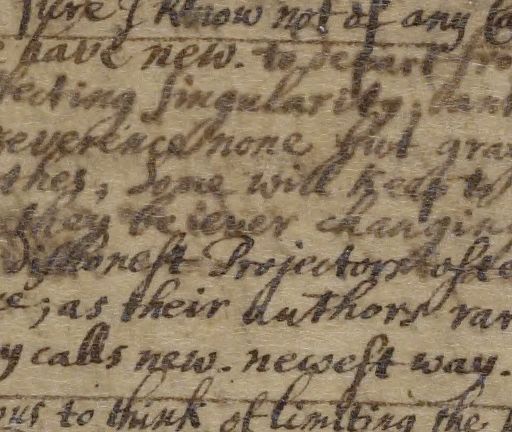 sure I know not of any
have new. to depart
fecting singularity,
reverence none but
thes, some will keep to
they be iever changin
dishonest Projectors ofte
e; as their authors rar
y calls new. newest way.
ous to think of limiting the